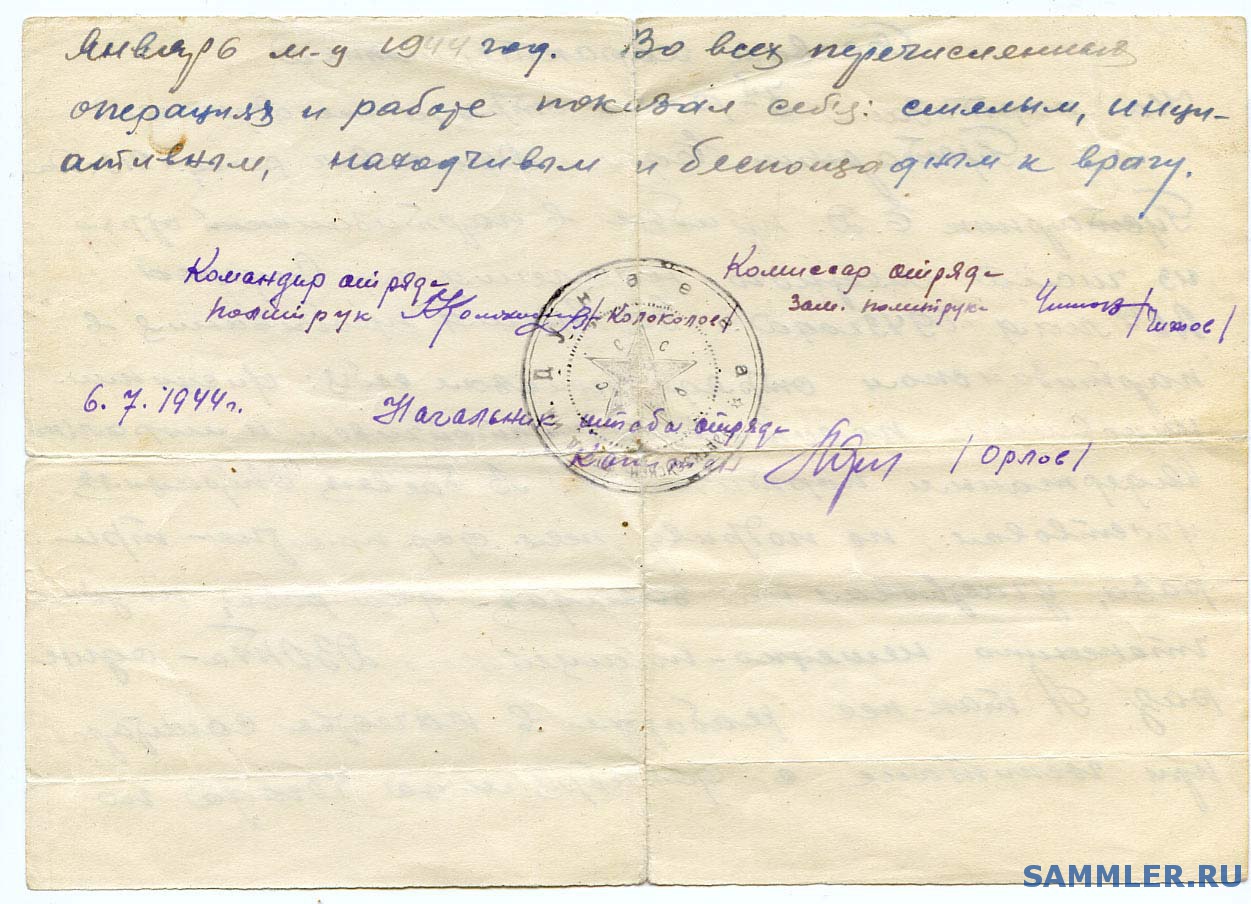 январь м-ц 1944 год. Во всех перечисленных
операциях и работе показал себя: смелым, иници-
ативным, находчивым и беспощадным к врагу.
Командир отряда
политрук /Колоколов/
Комиссар отряда
Зам. политрука Чижов /Чижов/
6.7.1944г.
Начальник штаба отряда
Капитан /Орлов/
Дунаева
СССР
SAMMLER.RU